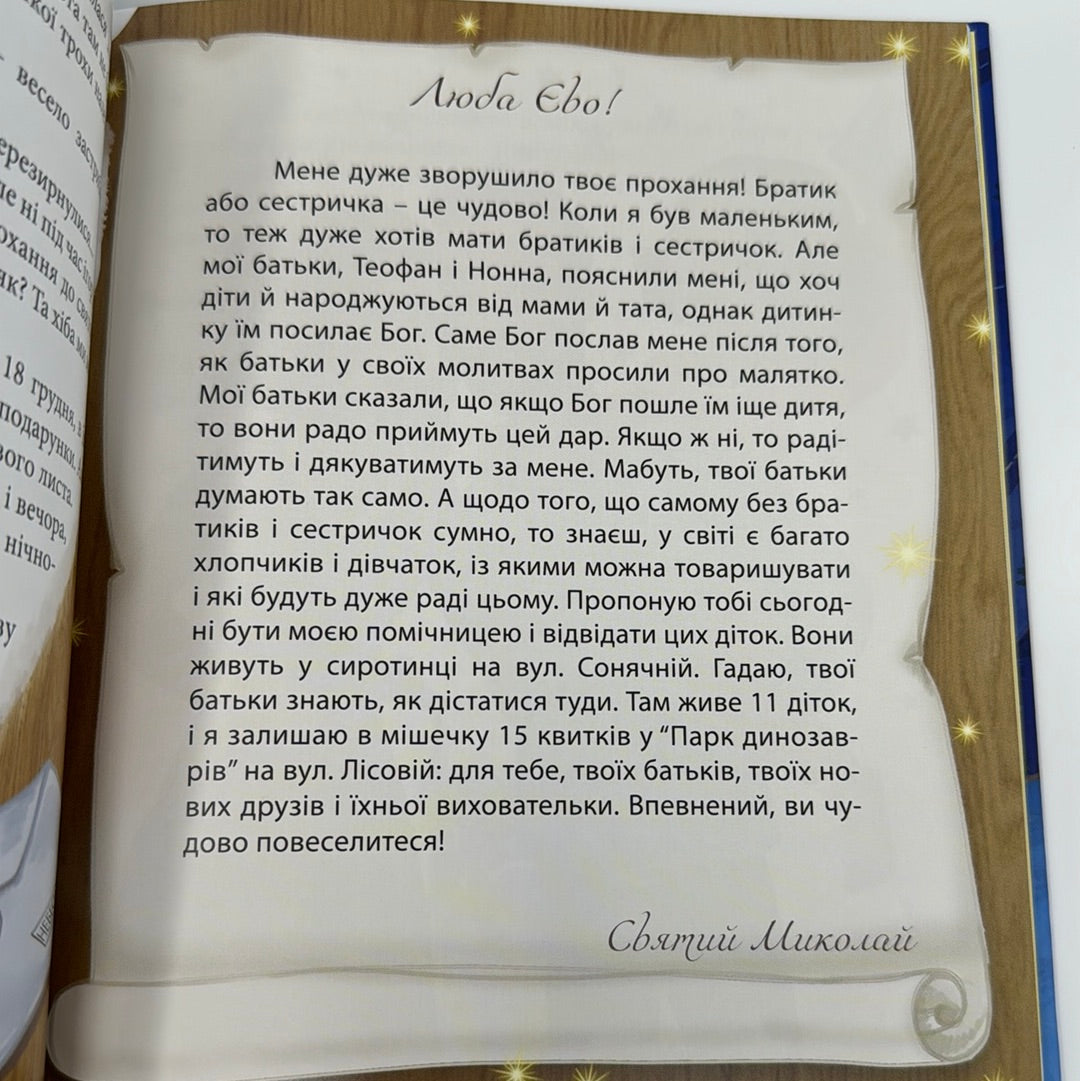 весело
18 грудня, в
подарунки.
вого листа.
і вечора,
нічно-
Люба Єво!
Мене дуже зворушило твоє прохання! Братик
або сестричка – це чудово! Коли я був маленьким,
то теж дуже хотів мати братиків і сестричок. Але
мої батьки, Теофан і Нонна, пояснили мені, що хоч
діти й народжуються від мами й тата, однак дитин-
ку їм посилає Бог. Саме Бог послав мене після того,
як батьки у своїх молитвах просили про малятко.
Мої батьки сказали, що якщо Бог пошле їм іще дитя,
то вони радо приймуть цей дар. Якщо ж ні, то раді-
тимуть і дякуватимуть за мене. Мабуть, твої батьки
думають так само. А щодо того, що самому без бра-
тиків і сестричок сумно, то знаєш, у світі є багато
хлопчиків і дівчаток, із якими можна товаришувати
і які будуть дуже раді цьому. Пропоную тобі сьогод-
ні бути моєю помічницею і відвідати цих діток. Вони
живуть у сиротинці на вул. Сонячній. Гадаю, твої
батьки знають, як дістатися туди. Там живе 11 діток,
і я залишаю в мішечку 15 квитків у “Парк динозав-
рів” на вул. Лісовій: для тебе, твоїх батьків, твоїх но-
вих друзів і їхньої виховательки. Впевнений, ви чу-
дово повеселитеся!
Святий Миколай